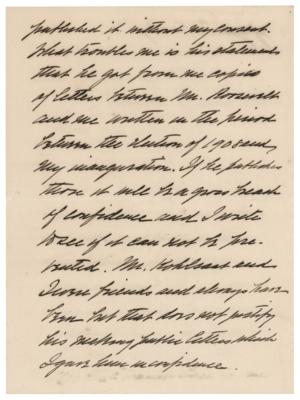 published it without my consent.
What troubles me is his statement
that he got from me copies
of letters between Mr. Roosevelt
and me written in the period
between the election of 1908 and
my inauguration. If he publishes
those it will be a gross breach
of confidence and I write
to see if it can not be pre-
vented. Mr. Kohlsaat and
I were friends and always have
been but that does not justify
his making public letters which
I gave him in confidence.